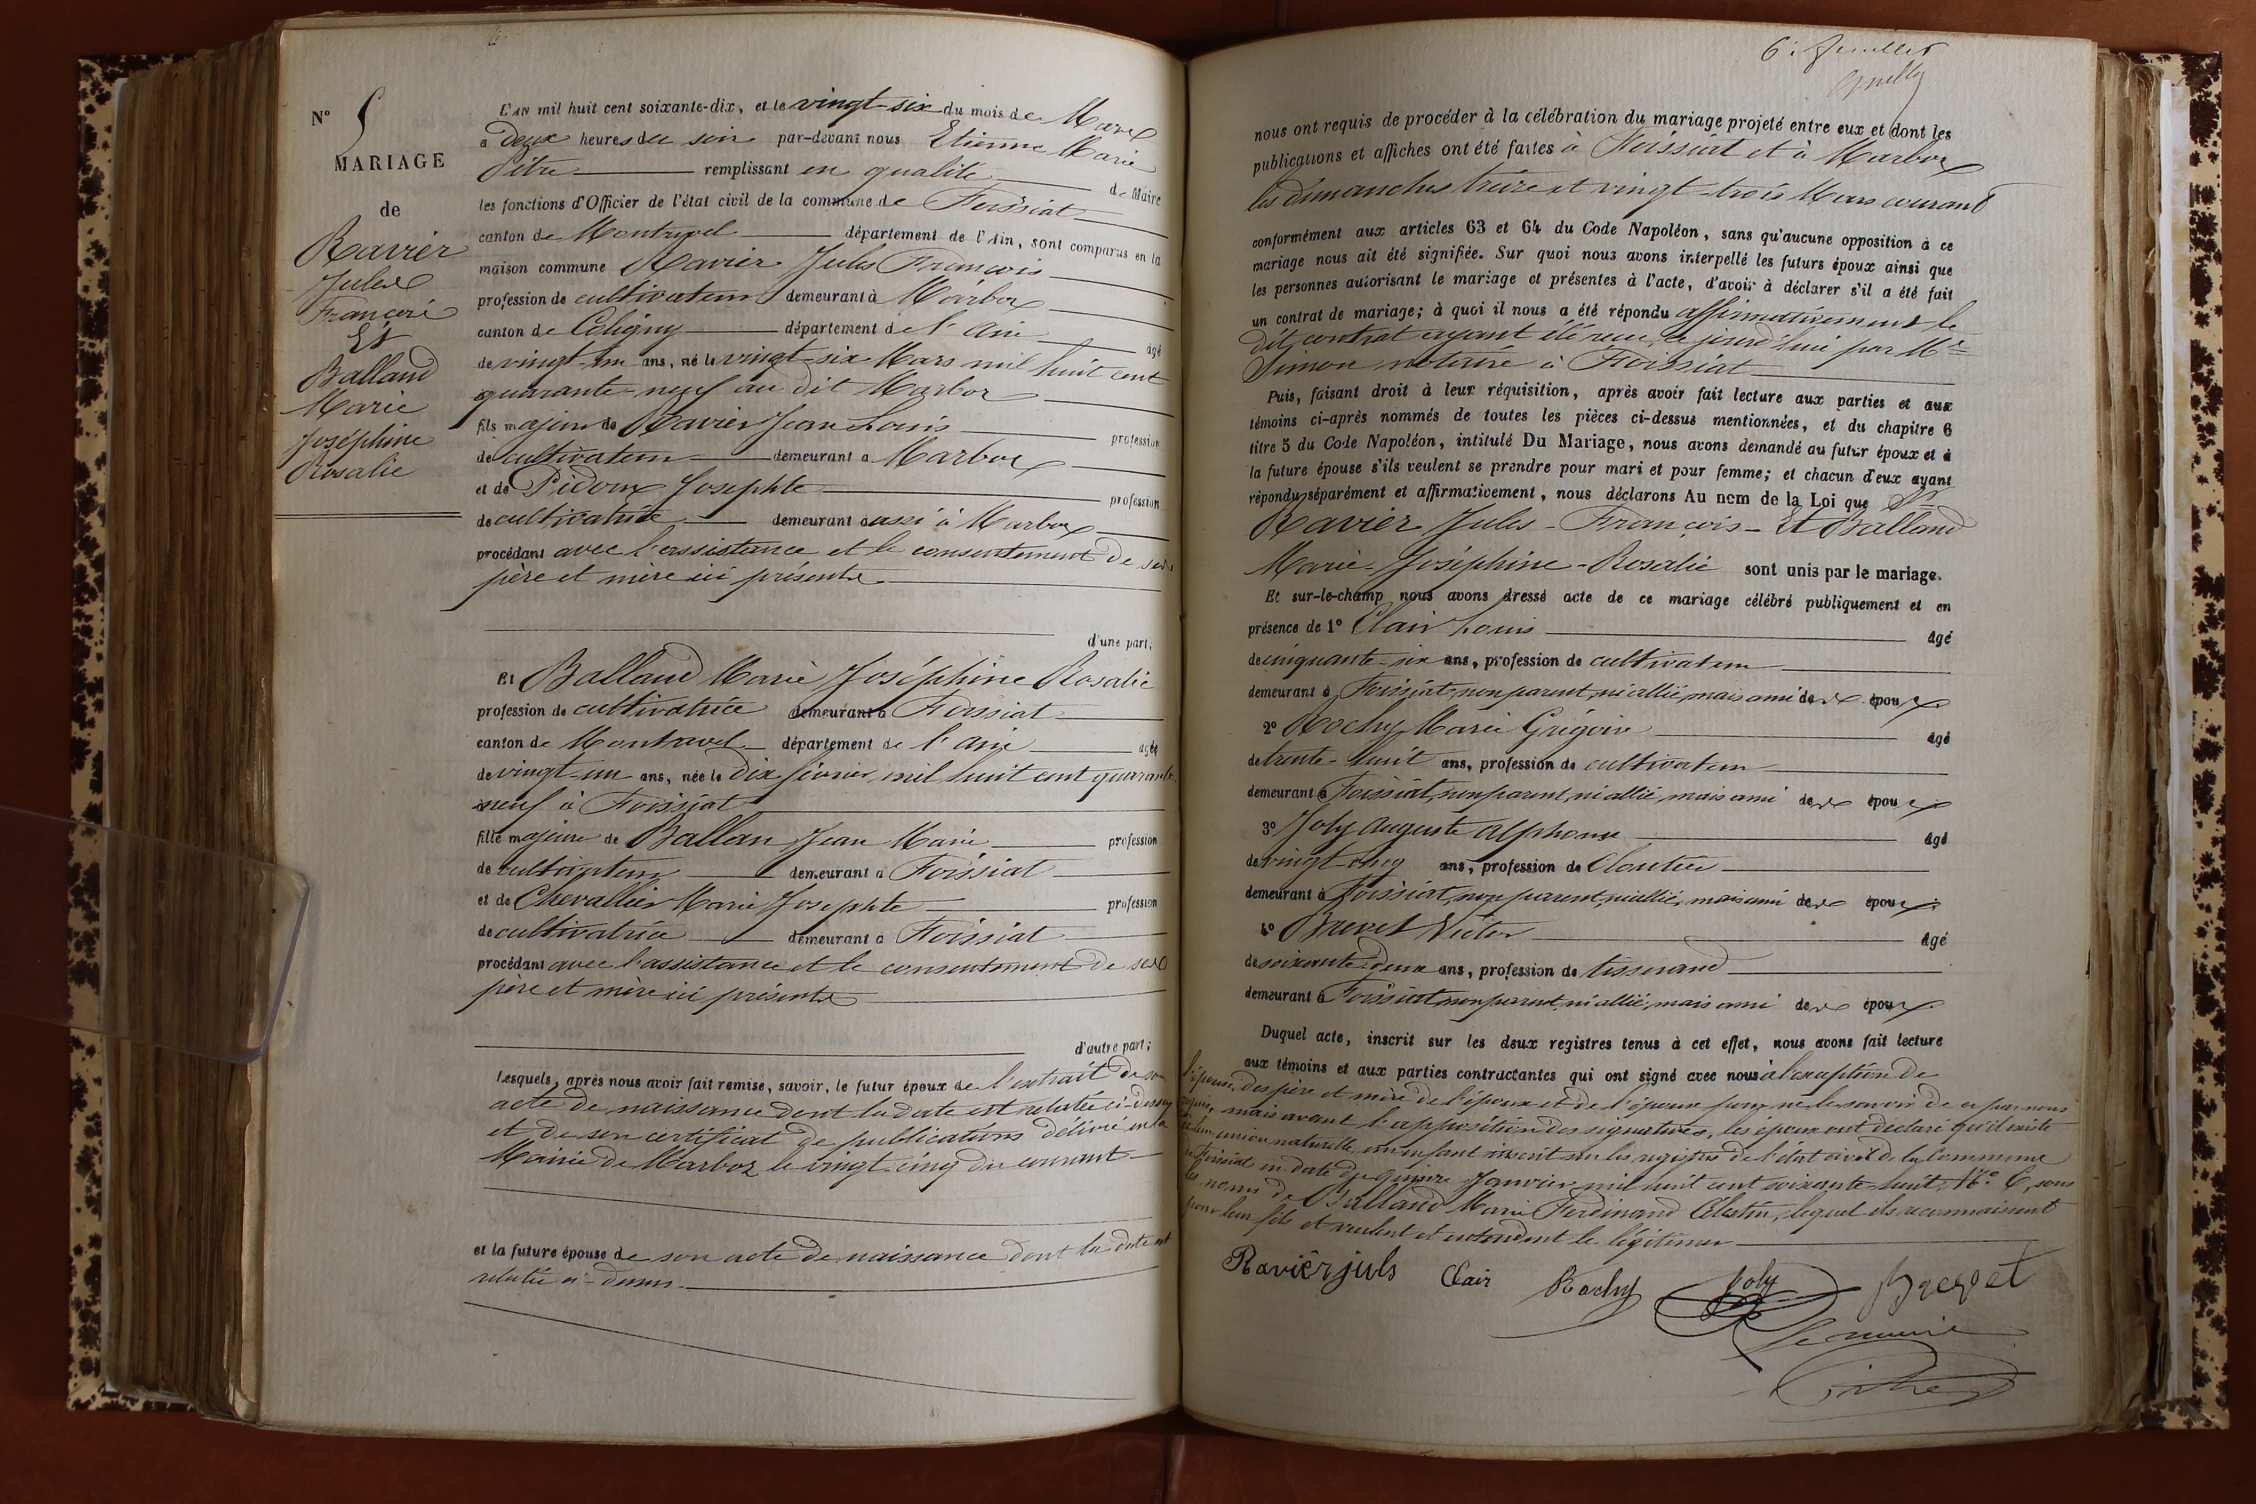 N° 5
MARIAGE
de
Ravier
Jules
François
Et
Balland
Marie
Joséphine
Rosalie
L'AN mil huit cent soixante-dix, et le vingt-six du mois de Mars
à deux heures du soir par-devant nous Etienne Marie
Pitre remplissant en qualité de Maire
les fonctions d'Officier de l'état civil de la commune de Foissiat
canton de Montrevel département de l'Ain, sont comparus en la
maison commune Ravier Jules François
profession de cultivateur demeurant à Marboz
canton de Coligny département de l'Ain âgé
de vingt-un ans, né le vingt-six Mars mil huit cent
quarante-neuf au dit Marboz
fils majeur de Ravier Jean Louis profession
de cultivateur demeurant à Marboz
et de Pidoux Josephte profession
de cultivatrice demeurant aussi à Marboz
procédant avec l'assistance et le consentement de ses
père et mère ici présents
d'une part;
Et Balland Marie Joséphine Rosalie
profession de cultivatrice demeurant à Foissiat
canton de Montrevel département de l'Ain âgée
de vingt-un ans, née le dix février mil huit cent quarante
neuf à Foissiat
fille majeure de Ballan Jean Marie profession
de cultivateur demeurant à Foissiat
et de Chevallier Marie Josephte profession
de cultivatrice demeurant à Foissiat
procédant avec l'assistance et le consentement de ses
père et mère ici présents
d'autre part;
Lesquels, après nous avoir fait remise, savoir, le futur époux de l'extrait de son
acte de naissance dont la date est relatée ci-dessus
et de son certificat de publications délivré en la
Mairie de Marboz le vingt-cinq du courant
et la future épouse de son acte de naissance dont la date est
relatée ci-dessus
6e feuillet
nous ont requis de procéder à la célébration du mariage projeté entre eux et dont les
publications et affiches ont été faites à Foissiat et à Marboz
les dimanches treize et vingt-trois Mars courant
conformément aux articles 63 et 64 du Code Napoléon, sans qu'aucune opposition à ce
mariage nous ait été signifiée. Sur quoi nous avons interpellé les futurs époux ainsi que
les personnes autorisant le mariage et présentes à l'acte, d'avoir à déclarer s'il a été fait
un contrat de mariage; à quoi il nous a été répondu affirmativement le
dit contrat ayant été reçu ce jourd'hui par Me
Simon notaire à Foissiat
Puis, faisant droit à leur réquisition, après avoir fait lecture aux parties et aux
témoins ci-après nommés de toutes les pièces ci-dessus mentionnées, et du chapitre 6
titre 5 du Code Napoléon, intitulé Du Mariage, nous avons demandé au futur époux et à
la future épouse s'ils veulent se prendre pour mari et pour femme; et chacun d'eux ayant
répondu séparément et affirmativement, nous déclarons Au nom de la Loi que Sr
Ravier Jules-François-Et Balland
Marie-Joséphine-Rosalie sont unis par le mariage.
Et sur-le-champ nous avons dressé acte de ce mariage célébré publiquement et en
présence de 1° Clair Louis âgé
de cinquante-six ans, profession de cultivateur
demeurant à Foissiat, non parent, ni allié, mais ami des époux
2° Rochy Marie Grégoire âgé
de trente-huit ans, profession de cultivateur
demeurant à Foissiat, non parent, ni allié, mais ami des époux
3° Joly Auguste Alphonse âgé
de vingt-cinq ans, profession de Cloutier
demeurant à Foissiat, non parent, ni allié, mais ami des époux
4° Brevet Victor âgé
de soixante-deux ans, profession de tisserand
demeurant à Foissiat, non parent, ni allié, mais ami des époux
Duquel acte, inscrit sur les deux registres tenus à cet effet, nous avons fait lecture
aux témoins et aux parties contractantes qui ont signé avec nous à l'exception de
l'épouse, des père et mère de l'époux et de l'épouse pour ne le savoir de ce par nous
requis, mais avant l'apposition des signatures, les époux ont déclaré qu'il existe
de leur union naturelle, un enfant inscrit sur les registres de l'état civil de la Commune
de Foissiat en date du quinze Janvier mil huit cent soixante-huit, No 6, sous
les noms de Balland Marie Ferdinand Célestin, lequel ils reconnaissent
pour leur fils et veulent et entendent le légitimer
Ravier juls Clair Rochy Joly Brevet
Le maire
Pitre